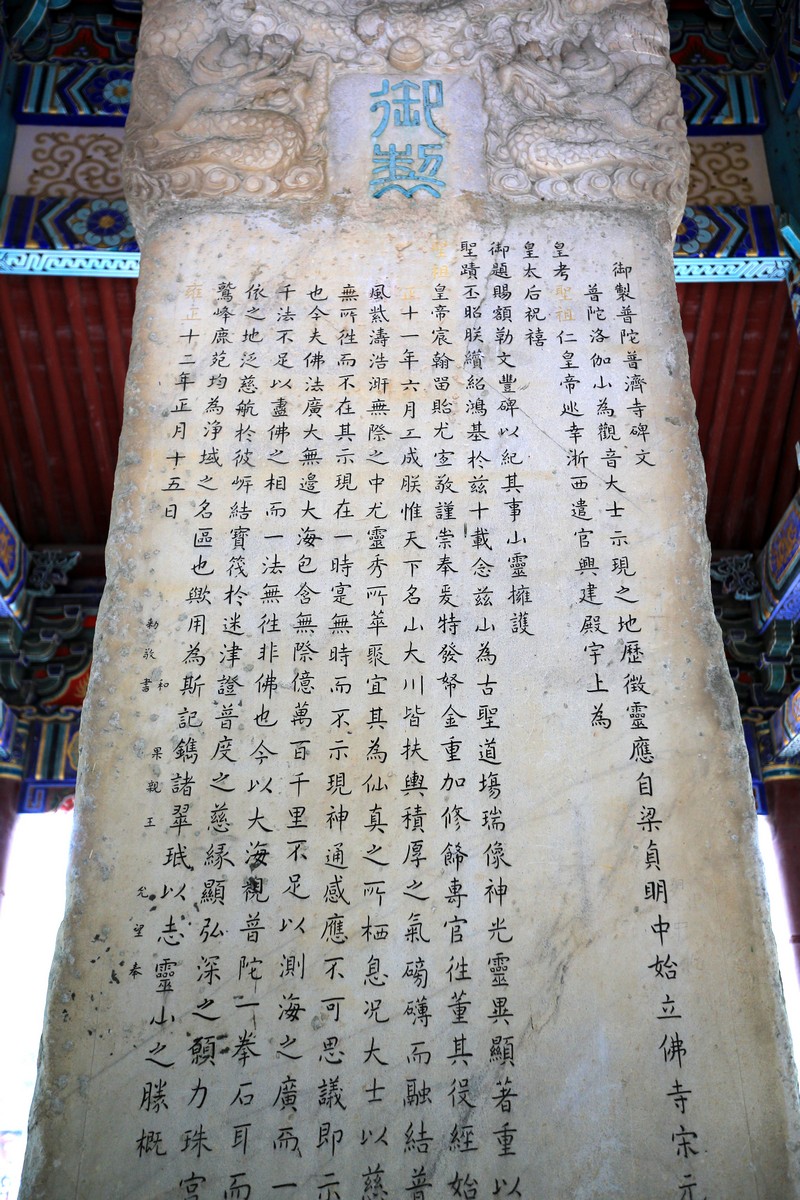 御製
御製普陀普濟寺碑文
普陀洛伽山為觀音大士示現之地歷徵靈應自梁貞明中始立佛寺宋元
皇考聖祖仁皇帝巡幸浙西遣官興建殿宇上為
皇太后祝禧
御題賜額勒文豐碑以紀其事山靈擁護
聖蹟丕昭朕纘紹鴻基於茲十載念茲山為古聖道場瑞像神光靈異顯著重以
聖祖皇帝宸翰留貽尤宜敬謹崇奉爰特發帑金重加修飾專官往董其役經始
正十一年六月工成朕惟天下名山大川皆扶輿積厚之氣磅礴而融結普
風紫濤浩澥無際之中尤靈秀所萃聚宜其為仙真之所栖息况大士以慈
無所往而不在其示現在一時寔無時而不示現神通感應不可思議即示
也今夫佛法廣大無邊大海包含無際億萬百千里不足以測海之廣而一
千法不足以盡佛之相而一法無往非佛也今以大海觀普陀一拳石耳而
依之地泛慈航於彼岸結寶筏於迷津證普度之慈緣顯弘深之願力珠宮
鷲峰鹿苑均為淨域之名區也歟用為斯記鐫諸翠珉以志靈山之勝概
雍正十二年正月十五日
和 果親王 允 奉
勅敬書